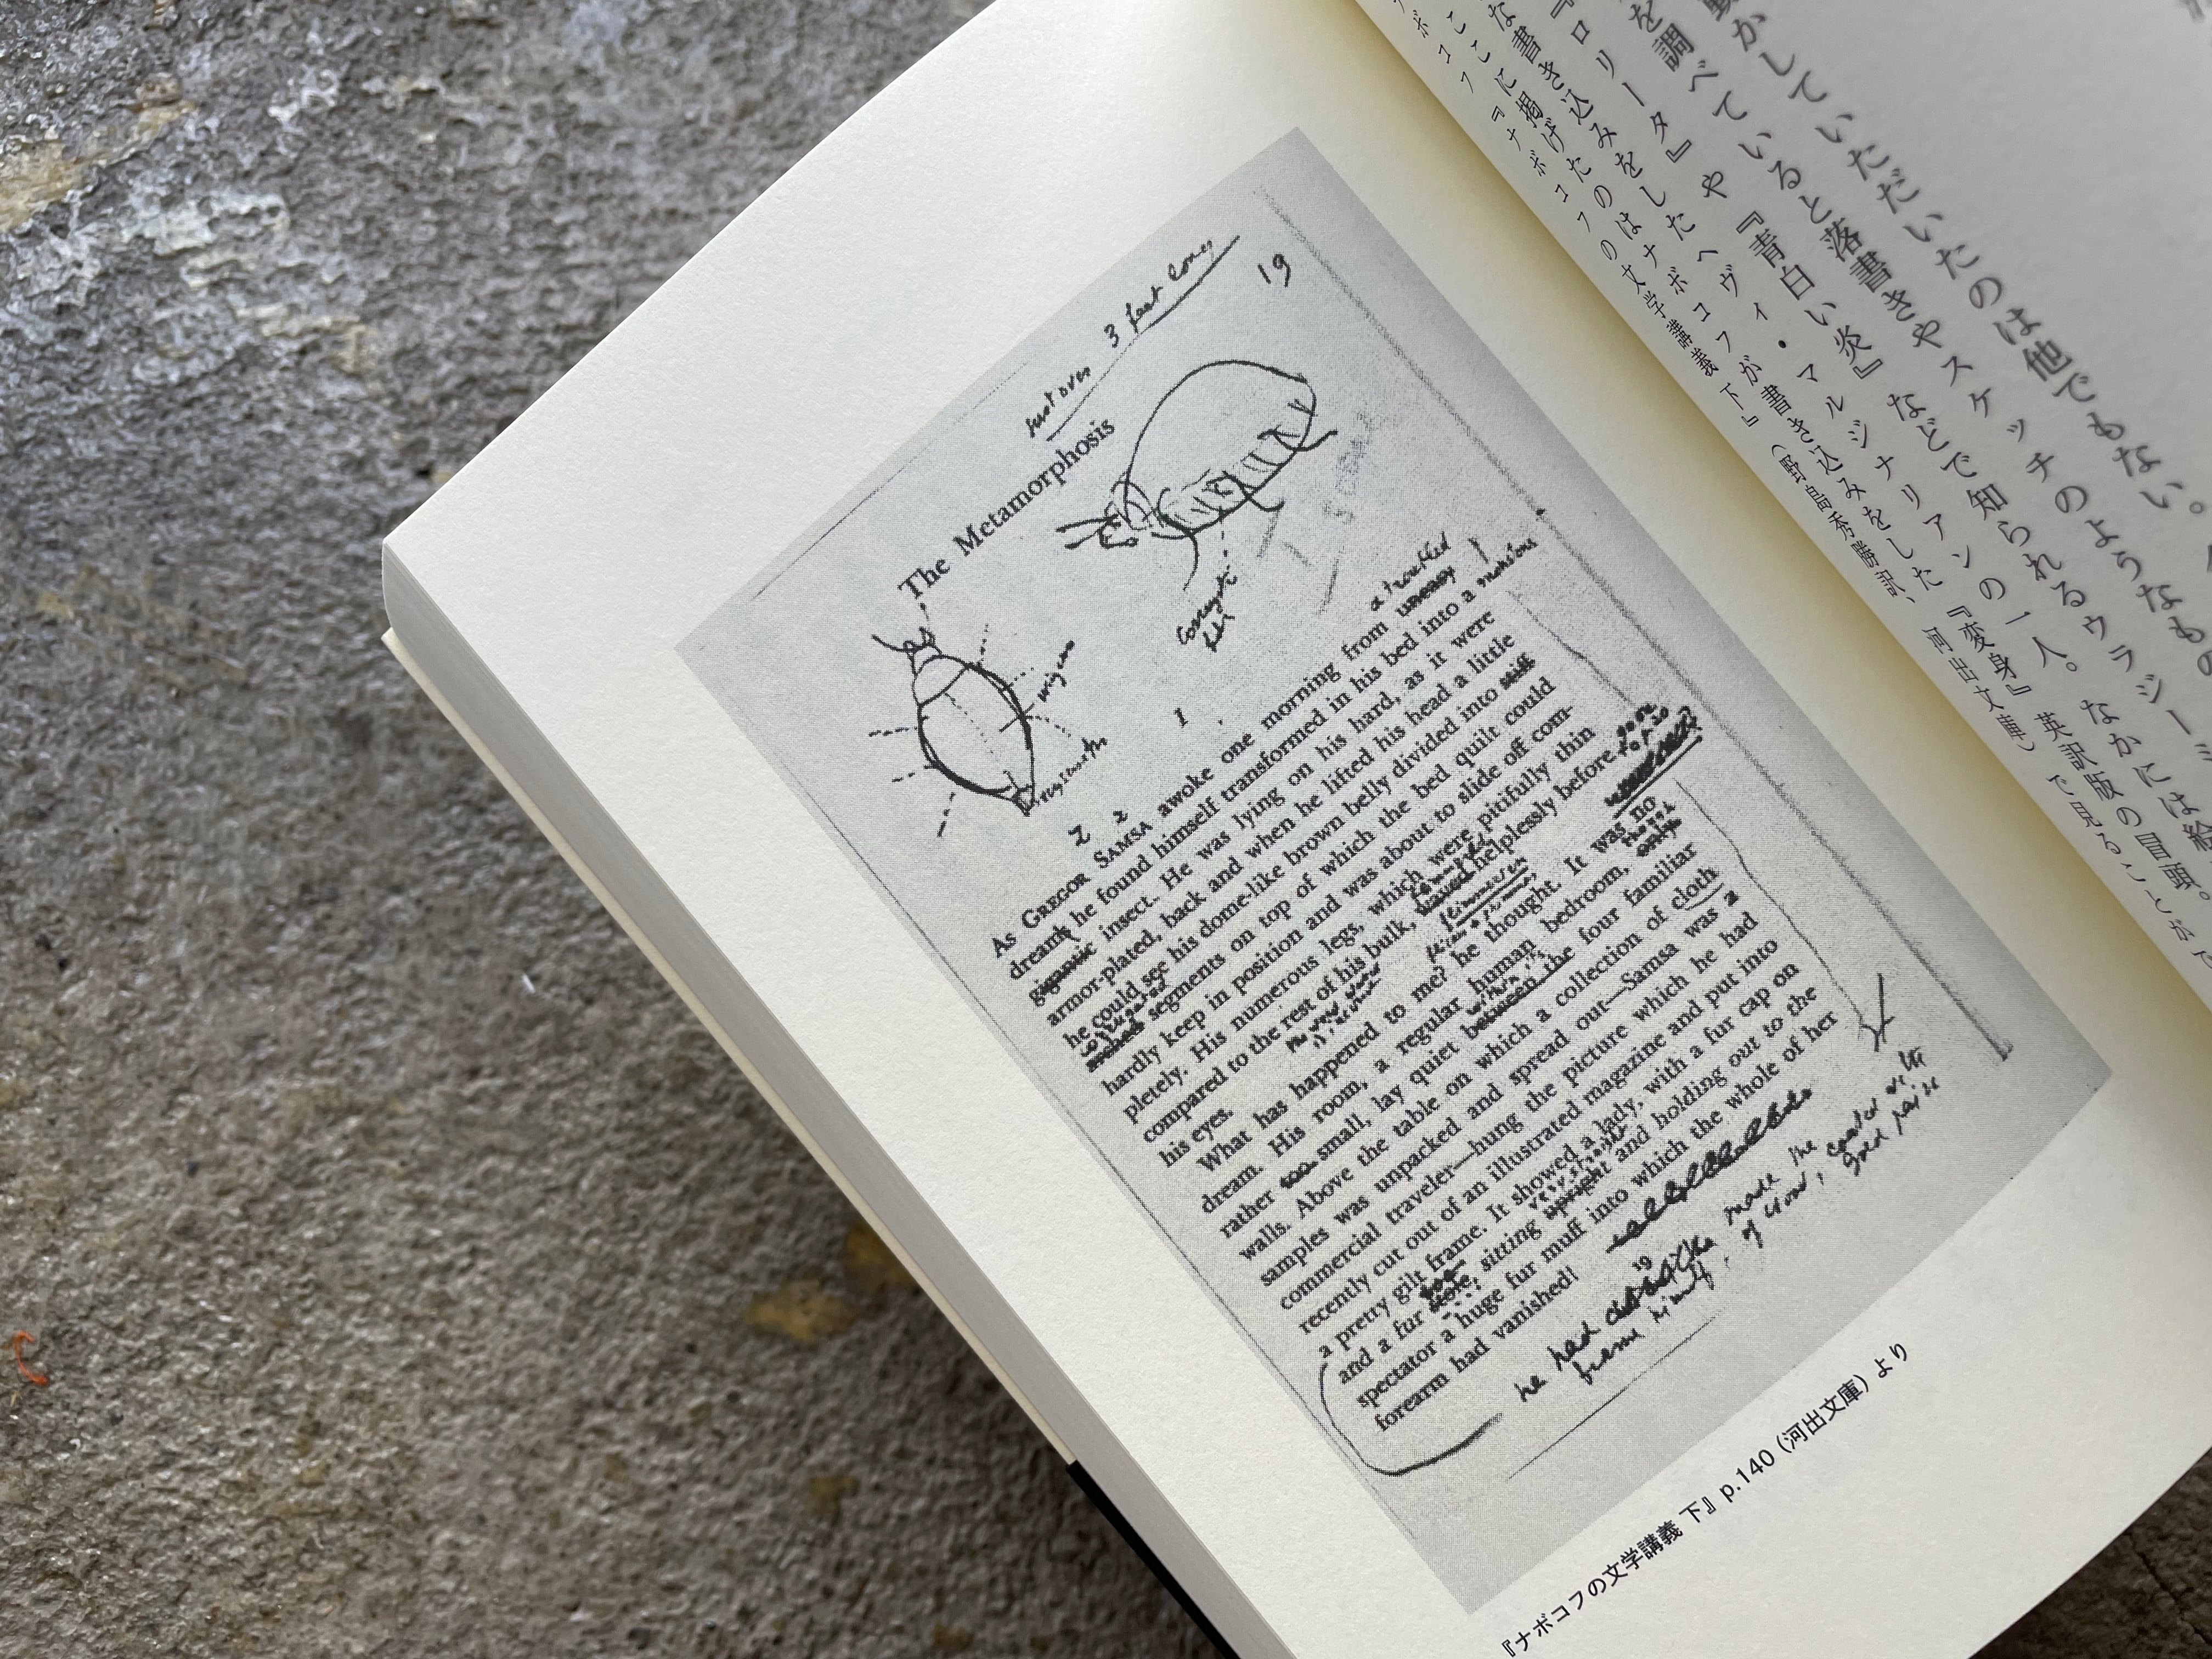 just over 3 feet long
19
The Metamorphosis
wings
I
a troubled
As GREGOR SAMSA awoke one morning from uneasy
dream, he found himself transformed in his bed into a monstrous
gigantic insect. He was lying on his hard, as it were
armor-plated, back and when he lifted his head a little
he could see his dome-like brown belly divided into stiff
corrugated
arched segments on top of which the bed quilt could
hardly keep in position and was about to slide off com-
pletely. His numerous legs, which were pitifully thin
compared to the rest of his bulk, waved helplessly before
his eyes.
flimmerten
What has happened to me? he thought. It was no
dream. His room, a regular human bedroom, only
rather too small, lay quiet between the four familiar
within its
walls. Above the table on which a collection of cloth
samples was unpacked and spread out—Samsa was a
commercial traveler—hung the picture which he had
recently cut out of an illustrated magazine and put into
a pretty gilt frame. It showed a lady, with a fur cap on
and a fur stole, sitting upright and holding out to the
boa
spectator a huge fur muff into which the whole of her
forearm had vanished!
he had made the
frame himself, of wood,
『ナボコフの文学講義 下』p.140（河出文庫）より
動かしていただいたのは他でもない。
を調べていると落書きやスケッチのようなもの
『ロリータ』や『青白い炎』などで知られるウラジーミ
な書き込みをしたヘヴィ・マルジナリアンの一人。なかには絵
ここに掲げたのはナボコフが書き込みをした『変身』英訳版の冒頭。
ナボコフ『ナボコフの文学講義 下』（野島秀勝訳、河出文庫）で見ることがで